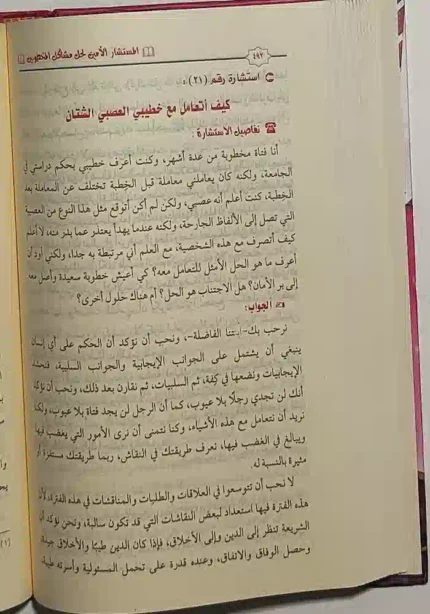 ٤٩٢ المستشار الأمين لحل مشاكل المخطوبين
استشارة رقم (٢١):
كيف أتعامل مع خطيبي العصبي الشتان
تفاصيل الاستشارة:
أنا فتاة مخطوبة من عدة أشهر، وكنت أعرف خطيبي بحكم دراستي في
الجامعة، ولكنه كان يعاملني معاملة قبل الخِطبة تختلف عن المعاملة بعد
الخِطبة، كنت أعلم أنه عصبي، ولكن لم أكن أتوقع مثل هذا النوع من العصبية
التي تصل إلى الألفاظ الجارحة، ولكنه عندما يهدأ يعتذر عما بدر منه، لا أعلم
كيف أتصرف مع هذه الشخصية، مع العلم أني مرتبطة به جدا، ولكني أود أن
أعرف ما هو الحل الأمثل للتعامل معه؟ كي أعيش خطوبة سعيدة وأصل معه
إلى بر الأمان؟ هل الاجتناب هو الحل؟ أم هناك حلول أخرى؟
الجواب:
نرحب بك -ابنتنا الفاضلة-، ونحب أن نؤكد أن الحكم على أي إنسان
ينبغي أن يشتمل على الجوانب الإيجابية والجوانب السلبية، فنحشد
الإيجابيات ونضعها في كِفة، ثم السلبيات، ثم نقارن بعد ذلك، ونحب أن نؤكد
أنك لن تجدي رجلًا بلا عيوب، كما أن الرجل لن يجد فتاة بلا عيوب، ولكنا
نريد أن نتعامل مع هذه الأشياء، وكنا نتمنى أن نرى الأمور التي يغضب فيها
ويبالغ في الغضب فيها، نعرف طريقتك في النقاش، ربما طريقتك مستفزة أو
مثيرة بالنسبة له.
لا نحب أن تتوسعوا في العلاقات والطلبات والمناقشات في هذه الفترة، لأن
هذه الفترة فيها استعداد لبعض النقاشات التي قد تكون سالبة، ونحن نؤكد أن
الشريعة تنظر إلى الدين وإلى الأخلاق، فإذا كان الدين طيبًا والأخلاق جيدة،
وحصل الوفاق والاتفاق، وعنده قدرة على تحمل المسئولية وأسرته طيبة،